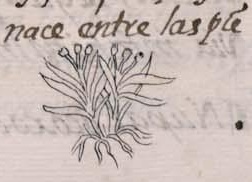 nace entre las pie